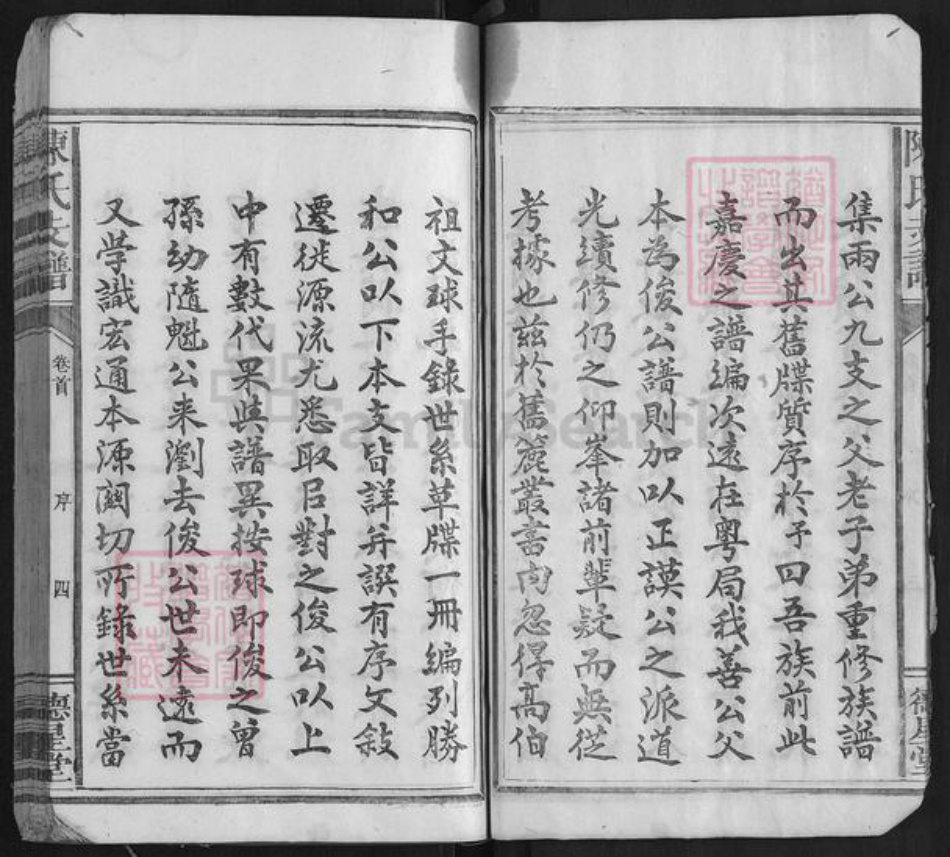 集兩公九支之父老子弟重修族譜
而出其舊牒質序於予曰吾族前此
嘉慶之譜編次遠在粵局我善公父
本為俊公譜則加以正謨公之派道
光續修仍之仰峯諸前輩疑而無從
考據也茲於舊簏叢書內忽得高伯
祖文球手錄世系草牒一冊編列勝
和公以下本支皆詳并譔有序文敍
遷徙源流尤悉取呂對之俊公以上
中有數代果與譜異按球即俊之曾
孫幼隨魁公来瀏去俊公世未遠而
又学識宏通本源關切所錄世系當
陳氏支譜
卷首
序
四
德星堂
FamilySearch